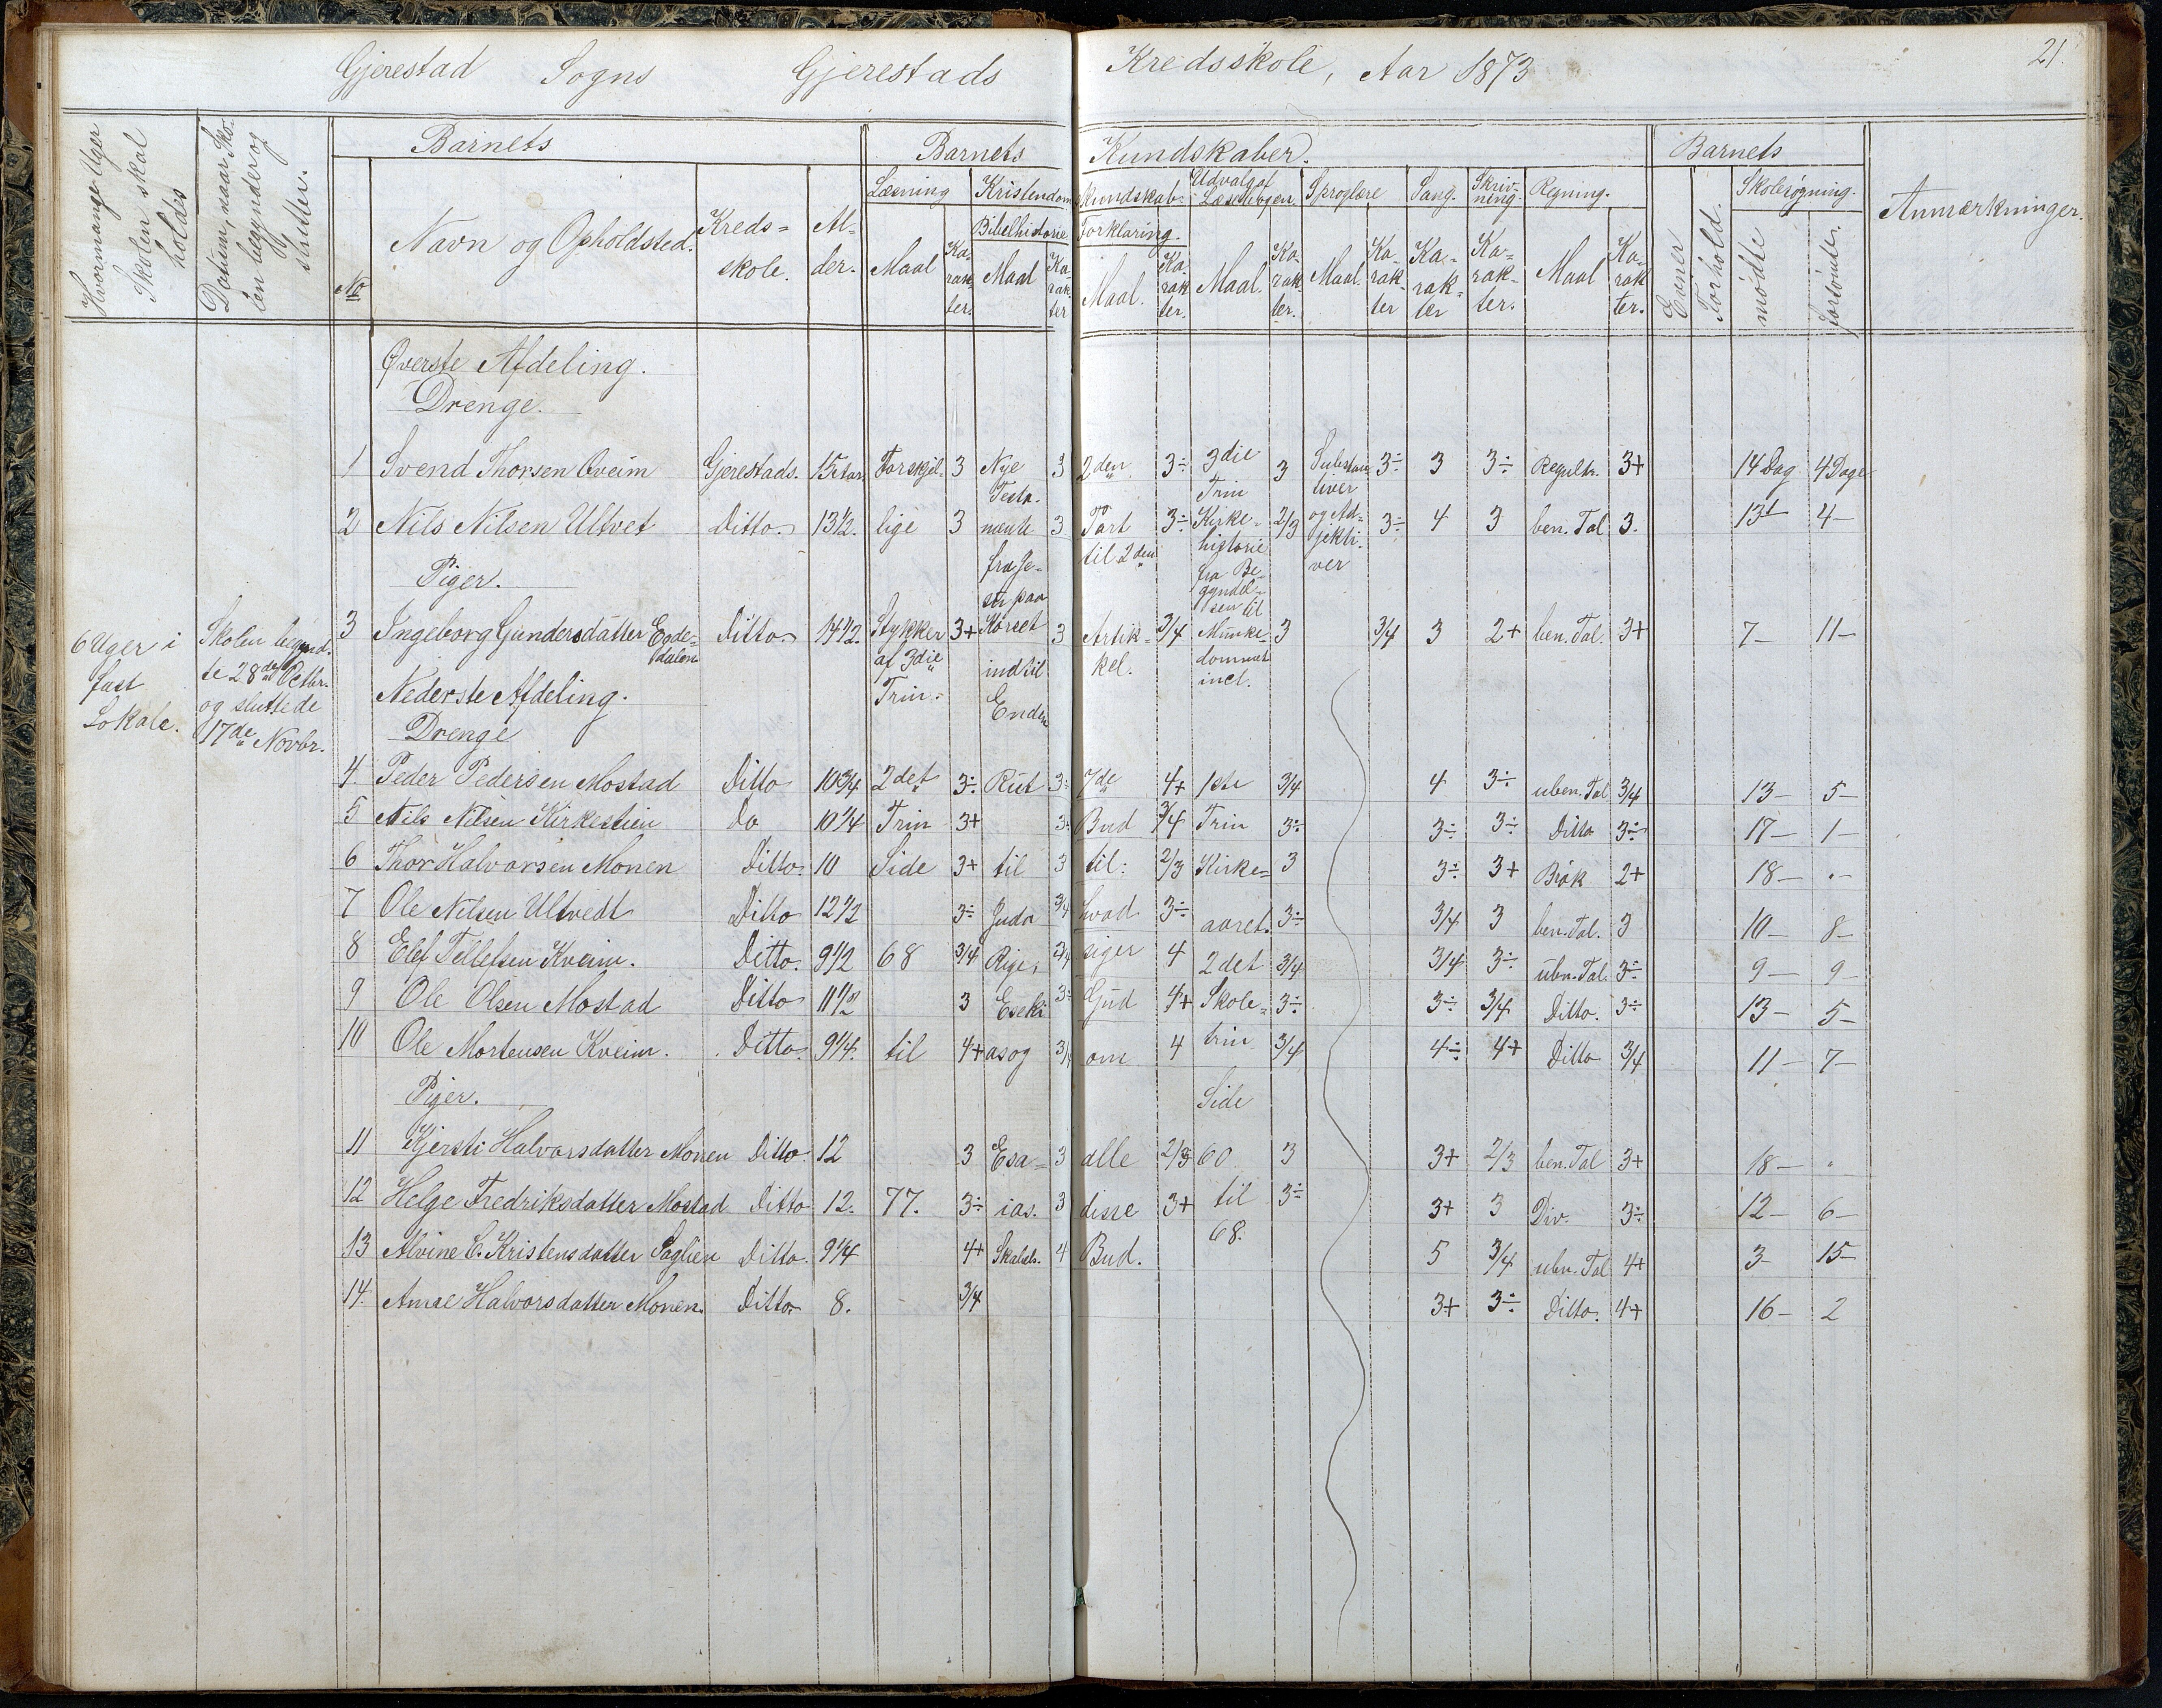 Gjerestad Sogns Gjerestads Kredsskole, Aar 1873
21.
Hvormange Uger Skolen skal holdes
Datum, naar Skolen begynder og slutter.
Barnets
Barnets Kundskaber.
Barnets
Anmærkninger.
No
Navn og Opholdsted.
Kreds=skole.
Al-der.
Læsning
Kristendomskundskab.
Udvalg af Læsebogen.
Sproglære
Sang.
Skriv-ning.
Regning.
Evner
Forhold.
Skolesøgning.
Bibelhistorie
Forklaring.
Maal Ka-rak-ter. Maal Ka-rak-ter Maal. Ka-rak-ter. Maal. Ka-rak-ter. Maal. Ka-rak-ter Ka-rak-ter Ka-rak-ter. Maal Ka-rak-ter.
mødte
forsømte.
6 Uger i
fast
Lokale.
Skolen begynd-
te 28de Octbr.
og sluttede
17de Novbr.
Øverste Afdeling.
Drenge.
1 Svend Thorsen Qveim Gjerestads. 15 Aar Forskjel- 3 Nye Testa- 3 2den 3÷ 3die Trin 3 Substan-tiver 3÷ 3 3÷ Regultr. 3+ 14 Dag 4 Dage
2 Nils Nilsen Ultvet Ditto. 13½. lige 3 mente 3 Part til 2den 3÷ Kirke-historie fra Be-gyndel-sen til 2/3 og Ad-jekti-ver 3÷ 4 3 ben. Tal 3. 13½ 4-
Piger.
3 Ingeborg Gundersdatter Egde-dalen Ditto 14½ Stykker af 3die Trin. 3+ Korset indtil Enden 3 Artik-kel. 3/4 Munke-dommet incl. 3 3/4 3 2+ ben. Tal 3+ 7- 11-
Nederste Afdeling.
Drenge
4. Peder Pedersen Mostad Ditto 10¾ 2det 3÷ Rut 3÷ 7de 4+ 1ste 3/4 4 3÷ uben. Tal 3/4 13- 5-
5 Nils Nilsen Kirkestien Do 10¼ Trin 3+ 3÷ Bud 3/4 Trin 3÷ 3÷ 3÷ Ditto 3÷ 17- 1-
6 Thor Halvorsen Monen Ditto. 10 Side 3+ til 3 til: 2/3 Kirke= 3 3÷ 3+ Brøk 2+ 18- "-
7 Ole Nilsen Ultvedt Ditto 12½ 3÷ Juda 3/4 hvad 3÷ aaret. 3÷ 3/4 3 ben. Tal. 3 10- 8-
8 Elef Tellefsen Kveim. Ditto. 9½ 68 3/4 Rige, 3/4 siger 4 2det 3/4 3/4 3÷ ubn. Tal. 3÷ 9- 9-
9 Ole Olsen Mostad Ditto 11½ 3 Eseki 3÷ Gud 4+ Skole= 3÷ 3÷ 3/4 Ditto. 3÷ 13- 5-
10 Ole Mortensen Kveim. Ditto. 9¼. til 4+ as og 3/4 om 4 trin 3/4 4÷ 4+ Ditto 3/4 11- 7-
Piger. Side
11 Kjersti Halvorsdatter Monen Ditto 12 3 Esa= 3 alle 2/3 60 3 3+ 2/3 ben. Tal 3+ 18- "
12 Helge Fredriksdatter Mostad Ditto 12. 77. 3÷ ias. 3 disse 3+ til 3÷ 3+ 3 Div. 3÷ 12- 6-
13 Alvine C. Kristensdatter Saglien Ditto. 9¼ 4+ 4 Bud. 68. 5 3/4 ubn. Tal 4+ 3- 15-
14. Anne Halvorsdatter Monen. Ditto 8. 3/4 3+ 3÷ Ditto. 4+ 16- 2